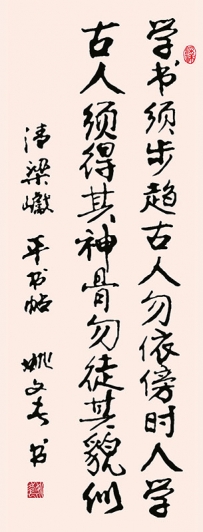 学书须步趋古人勿依傍时人学
古人须得其神骨勿徒其貌似
清梁巘 平书帖 姚文奎 书